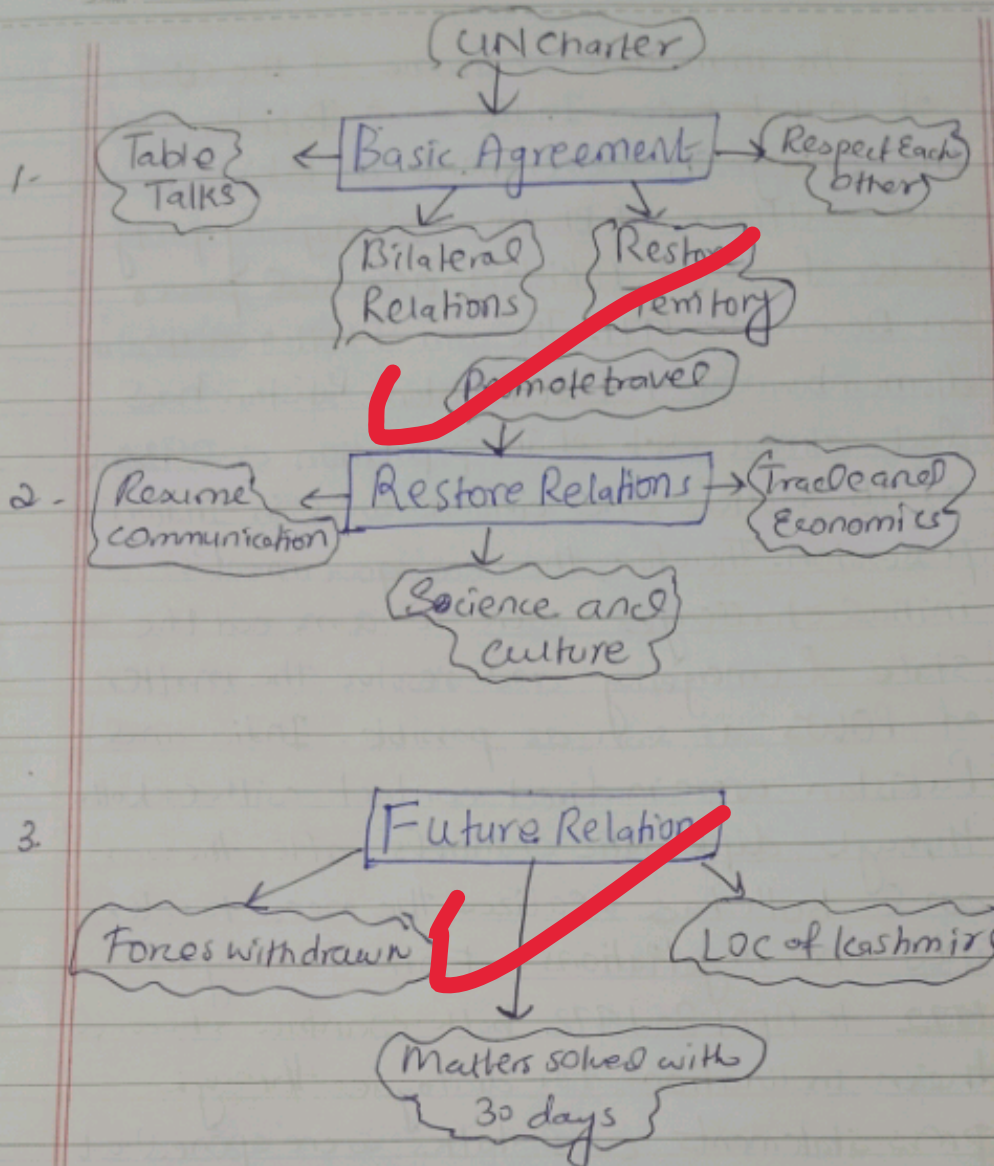 UN Charter
1- Table Talks
Basic Agreement
Respect Each Other
Bilateral Relations
Restore Territory
Promote travel
2- Resume communication
Restore Relations
Trade and Economics
Science and culture
3. Future Relation
Forces withdrawn
LOC of Kashmir
Matters solved with 30 days